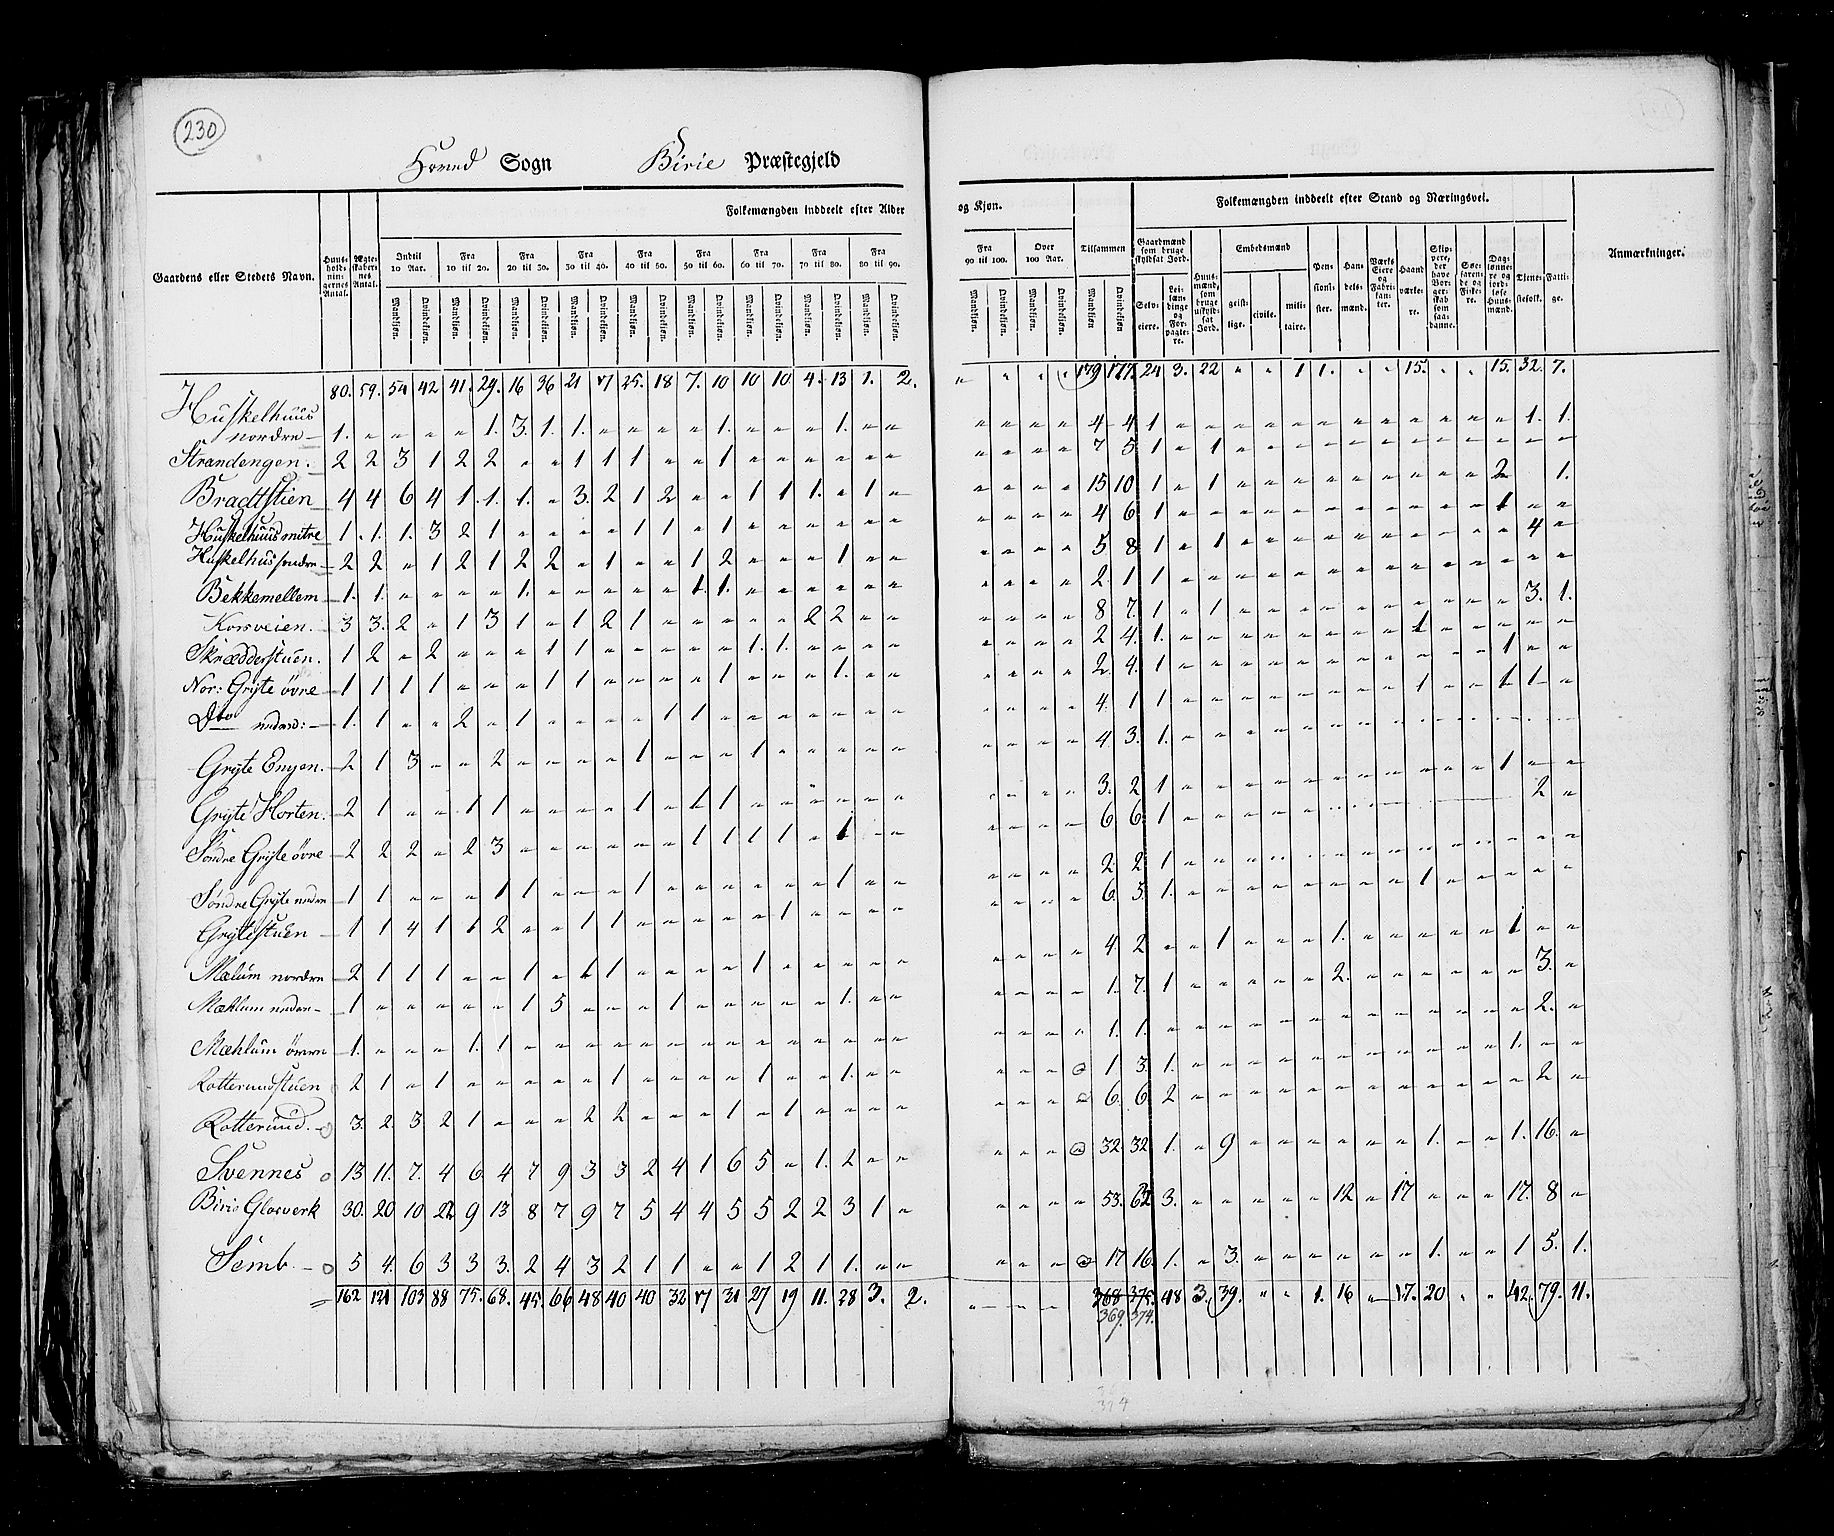 230
Hoved Sogn Birie Præstegjeld
Gaardens eller Steders Navn.
Huusholdningernes Antal.
Ægteskabernes Antal.
Folkemængden inddeelt efter Alder
og Kjøn.
Indtil 10 Aar.
Fra 10 til 20.
Fra 20 til 30.
Fra 30 til 40.
Fra 40 til 50.
Fra 50 til 60.
Fra 60 til 70.
Fra 70 til 80.
Fra 80 til 90.
Fra 90 til 100.
Over 100 Aar.
Tilsammen
Mandkjøn. Qvindekjøn.
Folkemængden inddeelt efter Stand og Næringsvei.
Gaardmænd som bruge skyldsat Jord.
Selveiere.
Leilændinge og Forpagtere.
Huusmænd, som bruge uskyldsat Jord.
Embedsmænd
geistlige.
civile.
militaire.
Pensionister.
Handelsmænd.
Værks Eiere og Fabrikanter.
Haandværkere.
Skippere, der have Borgerskab som saadanne.
Søefarende og Fiskere.
Daglønnere og jordløse Huusmænd.
Tjenestefolk.
Fattige.
Anmærkninger.
80. 59. 54 42 41. 29. 16 36 21 17 25. 18 7. 10 10 10 4. 13 1. 2. " " " " 179 177. 24 3. 22 " " 1 1. " " 15. " " 15. 32. 7.
Huskelhuus
nordre 1. " " " " 1. 3. 1. 1. " " " " 1. " " " 1. " " " " " " 4 4 1 " " " " " " " " " " " " 1. 1.
Strandengen. 2 2 3 1 2 2 " " 1 1 1 " " 1 " " " " " " " " " " 7 5 1 " 1 " " " " " " " " " " " "
Bradtstien 4 4 6 4 1. 1. 1. " 3. 2 1 2 " " 1 1 1. " 1 " " " " " 15 10 1 " 1 " " " " " " " " " 2 1.
Huskelhuus mitre 1. 1. 1. 3 2 1 " " " " 1 1 " 1 " " " " " " " " " " 4 6 1 " " " " " " " " " " " 1 " "
Huskelhus søndre 2 2 " 1 2 1 2 2 " 1 " " 1 2 " " " 1 " " " " " " 5 8 1 " 1 " " " " " " " " " " 4 "
Bekkemellem 1. 1. " " " " 1. " " " " " 1. 1. " " " " " " " " " " 2 1 1 " " " " " " " " " " " " " "
Korsveien. 3 3. 2 " 1 3 1 " 1 2 1 " " " " " 2 2 " " " " " " 8 7. 1 " 1 " " " " " " " " " " 3. 1.
Skrædderstuen. 1 2 " 2 " " " 1 1 " " " " " 1. 1. " " " " " " " " 2 4. 1. " " " " " " " " 1 " " " " "
Nor: Gryte øvre 1 1 1 1 " " " 1 1 " " " " 1 " " " 1. " " " " " " 2 4. 1 " " " " " " " " " " " 1 " "
Dto nedre: 1. 1 " " 2 " 1 " " " " 1 1 " " " " " " " " " " " 4. 1 1 " " " " " " " " 1 " " 1 1 "
Gryte Engen. 2 1 3 " " 2 " " " " 1 " " " 1 " " " " " " " " " 4. 3. 1. " " " " " " " " " " " " " "
Gryte Horten. 2 1 " " 1 1 " " " " 1 " 1 1 " " " " " " " " " " 3. 2 1 " " " " " " " " " " " 1 " "
Søndre Gryte øvre 2 2 2 " 2 3 " " " " " " 1 1 1 1 " 1 " " " " " " 6 6 1 " " " " " " " " " " " " 2 "
Søndre Gryte nedre 1 1 " " " 1 1 " " " 1 " " " " " " 1 " " " " " " 2 2 1 " " " " " " " " " " " " " "
Grytestuen 1 1 4 1 1 2 " " 1 1 " " " " " 1 " " " " " " " " 6 5 1. " " " " " " " " 1 " " " " "
Mælum nordre 2 1 1 1 " " 1 " 1 1 " " " " 1 " " " " " " " " " 4. 2 " " 1 " " " 1. " " " " " 1 " "
Mæhlum nedre 1 " " " " " 1 5 " " " 1 " " " " " 1. " " " " " " 1. 7. 1 " " " " " 2. " " " " " " 3. "
Mæhlum øvren 1. " " " 1. 1 " " " " " " " " " " " " " " " " " " 1. 1. " " " " " " " " " " " " " 2. "
Rotterudstuen 2 1 " 1 " " " " " 1 " " " " 1 " " 1. " " " " " " 1 3. 1. " " " " " " " " " " " 1. " "
Rotterud. 3. 2. 3. 2 1 " " " 2 2 " " " 1 " 1 " " " " " " " " 6. 6 2 " " " " " " " " " " " " 2 "
Svennes 13 11. 7. 4 6. 4 7 9 3 3 2 4 1 6 5 " 1. 2 " " " " " " 32. 32 1. " 9 " " " " " " 1. " " 1. 16. "
Birie Glasverk 30. 20 10 22 9 13 8 7 9 7 5 4 4 5 5 2 2 3 1 " " " " " 53. 62 3. " " " " " 12 " 17 " " " 17. 8 "
Semb. 5 4. 6 3 3 3. 2 4 3 2 1 1 " " 1 2 1 1. " " " " " " 17 16. 1. " 3. " " " " " " 1. " " 1 5. 1.
162 121 103 88 75. 68. 45. 66 48 40 40 32 17 31 27 19 11. 28 3. 2. " " " " 368 375. 48 3. 39. " " 1. 16 " 17. 20 " " 42. 79. 11.
369. 374.
374